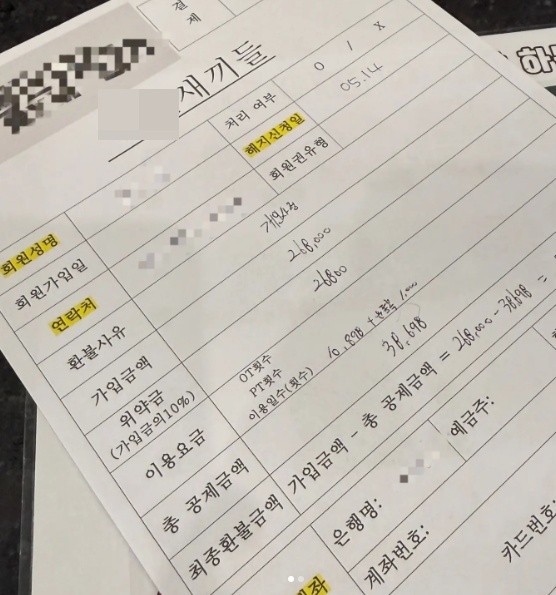 결
제
새끼들
처리 여부 O / X
해지신청일 05.14
회원권유형
회원성명
회원가입일
연락처
환불사유 개인사정
가입금액 268,000
위약금 26800
(가입금의10%)
이용요금
OT횟수
PT횟수
이용일수(횟수)
총 공제금액 38,698
최종환불금액 가입금액 - 총 공제금액 = 268,000 - 38,698 =
은행명: 예금주:
계좌번호: 카드번호:
계좌
하